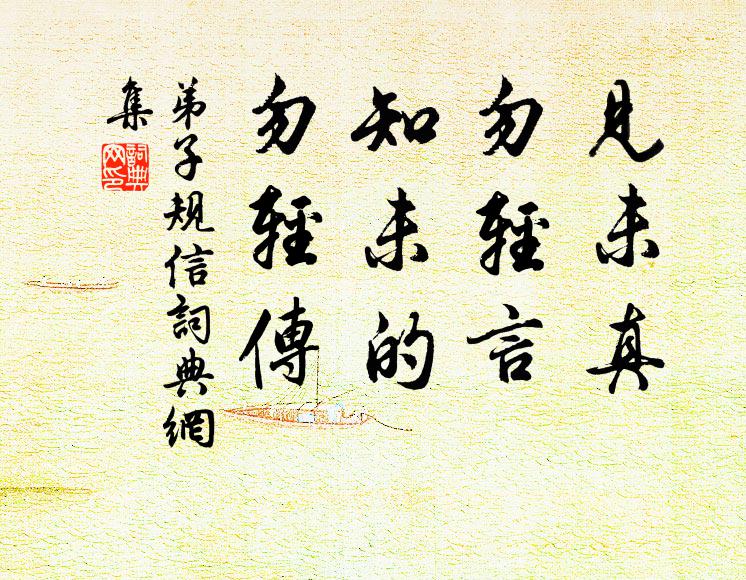 見未真
勿輕言
知未的
勿輕傳
弟子規信詞典網
集
詞典
网印